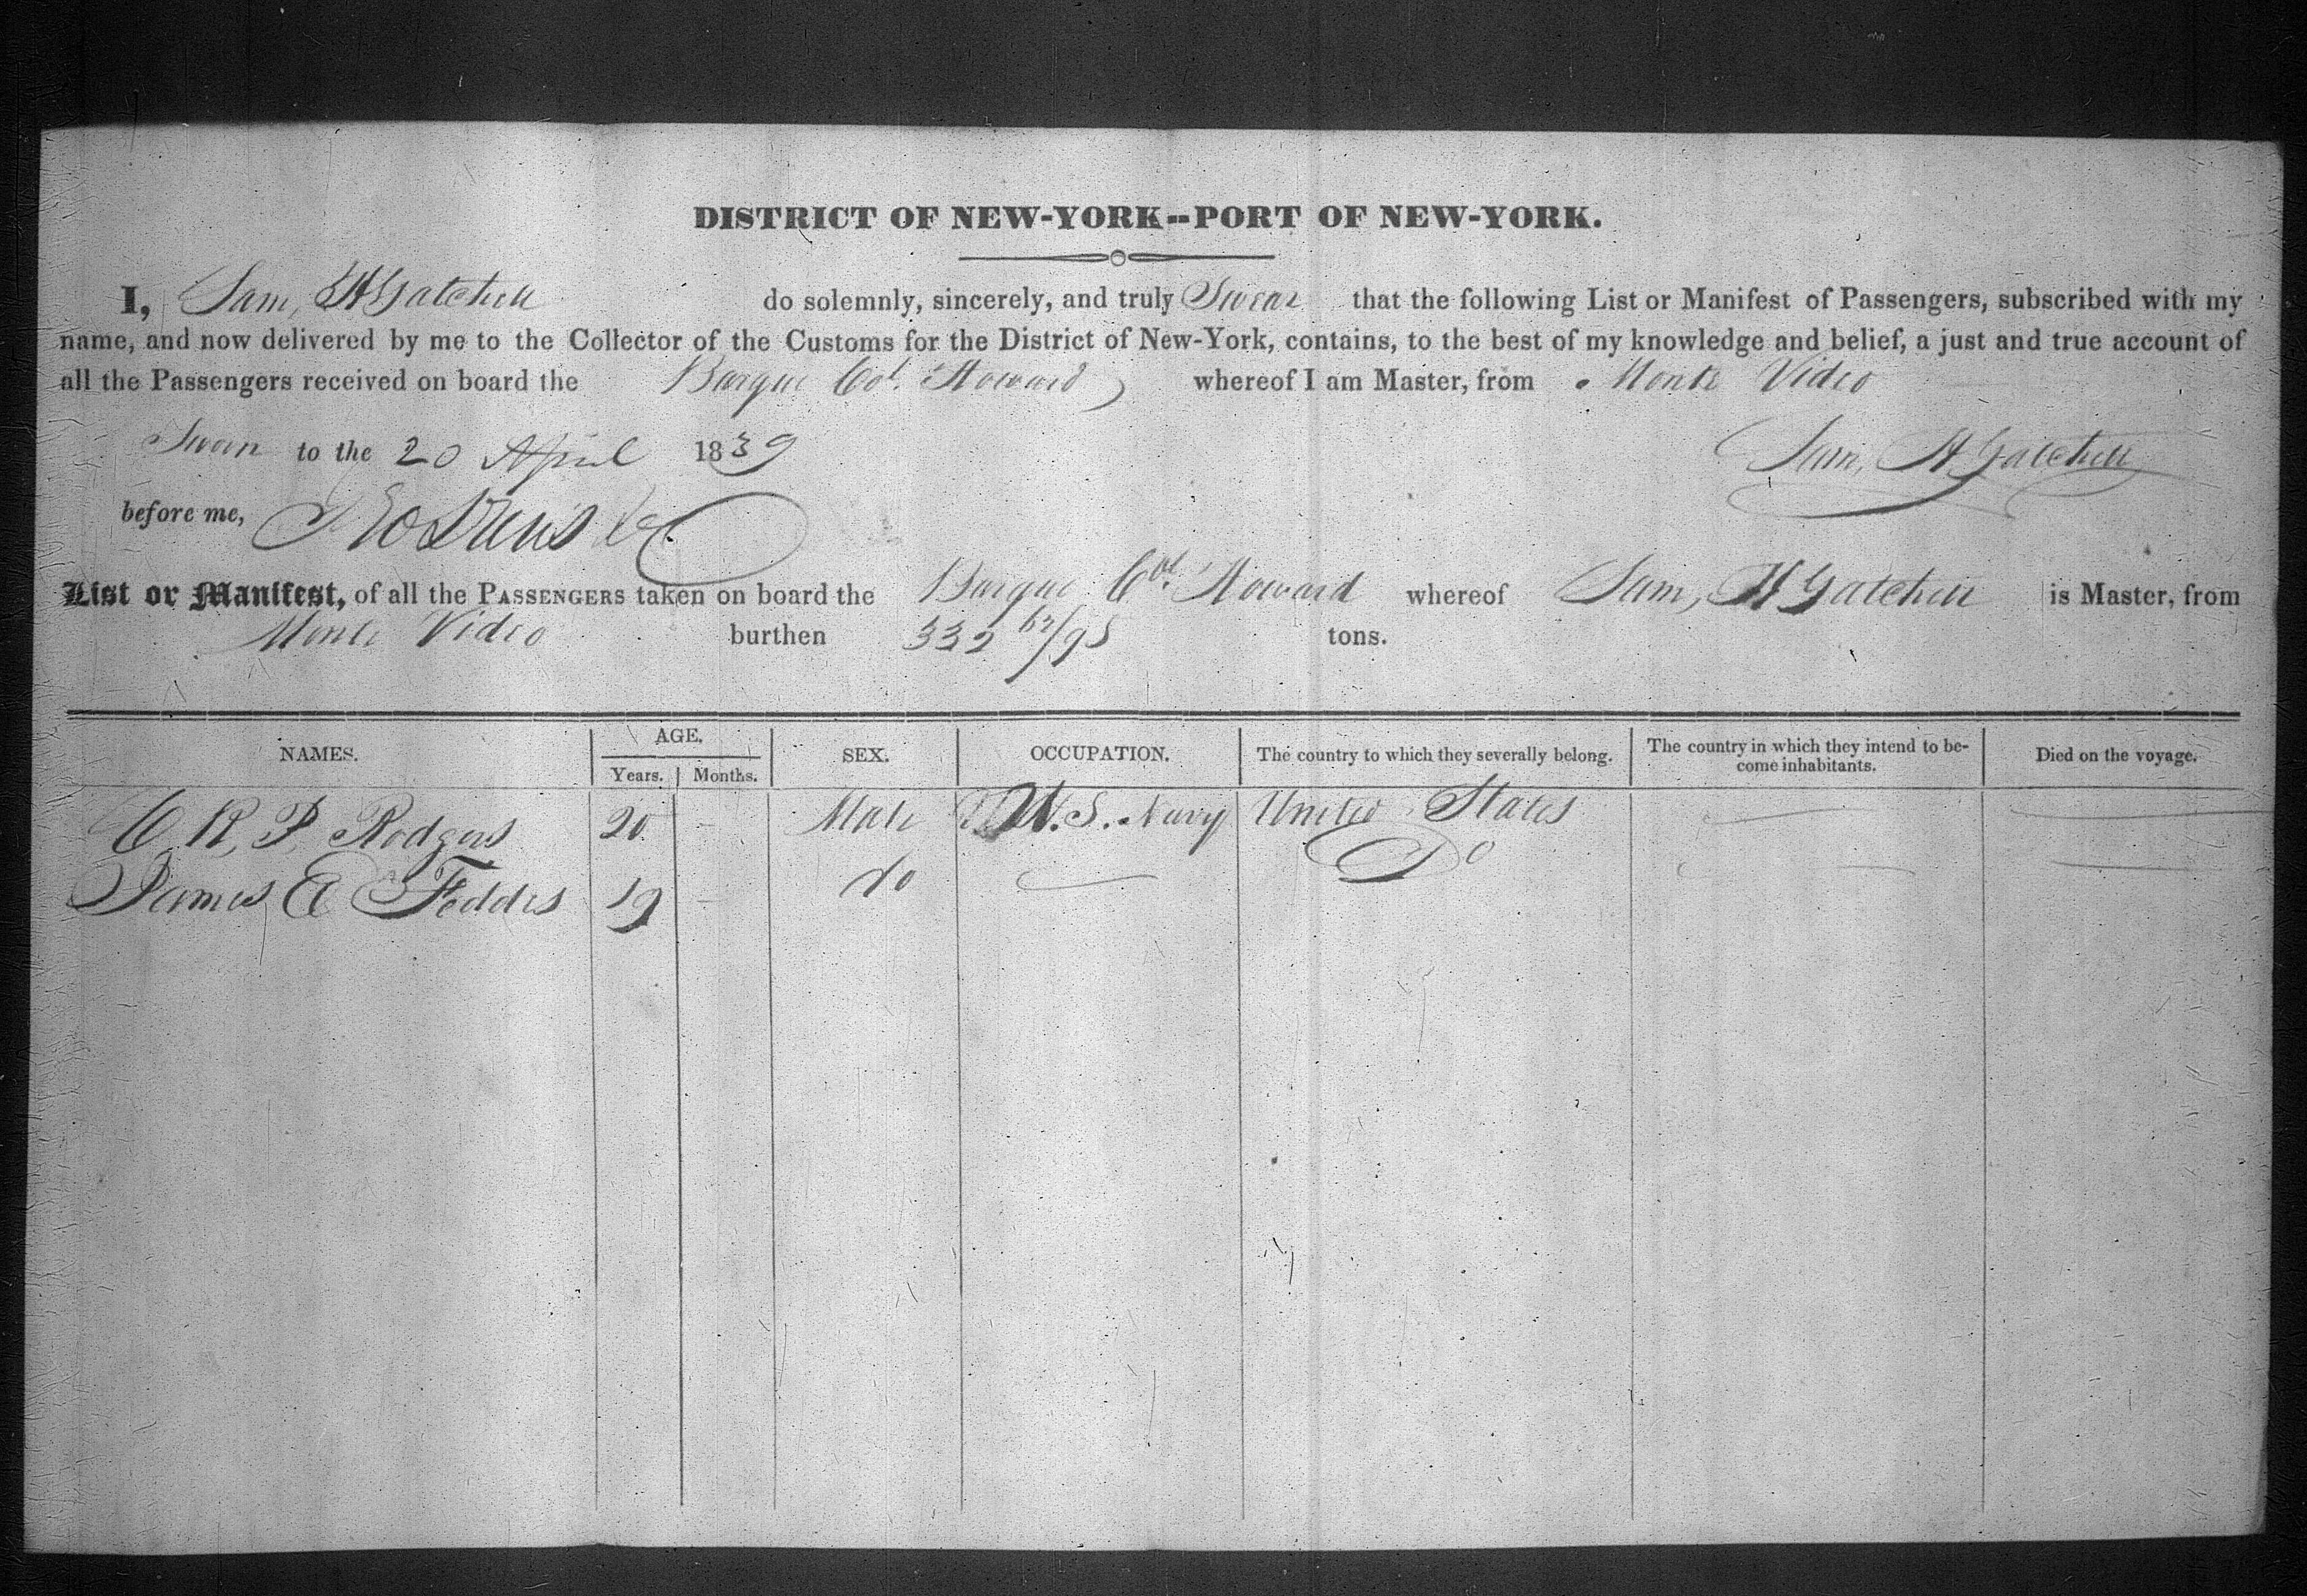 DISTRICT OF NEW-YORK--PORT OF NEW-YORK.
I, Sam, H Gatchell do solemnly, sincerely, and truly Swear that the following List or Manifest of Passengers, subscribed with my
name, and now delivered by me to the Collector of the Customs for the District of New-York, contains, to the best of my knowledge and belief, a just and true account of
all the Passengers received on board the Barque Col. Howard whereof I am Master, from Monte Video
Sworn to the 20 April 1839 Sam, H Gatchell
before me,
List or Manifest, of all the PASSENGERS taken on board the Barque Col. Howard whereof Sam, H Gatchell is Master, from
Monte Video burthen 332 62/95 tons.
NAMES. AGE. SEX. OCCUPATION. The country to which they severally belong. The country in which they intend to be-
come inhabitants. Died on the voyage.
Years. Months.
C, R, P, Rodgers 20 Male U.S. Navy United States
James E Feddes 19 do Do